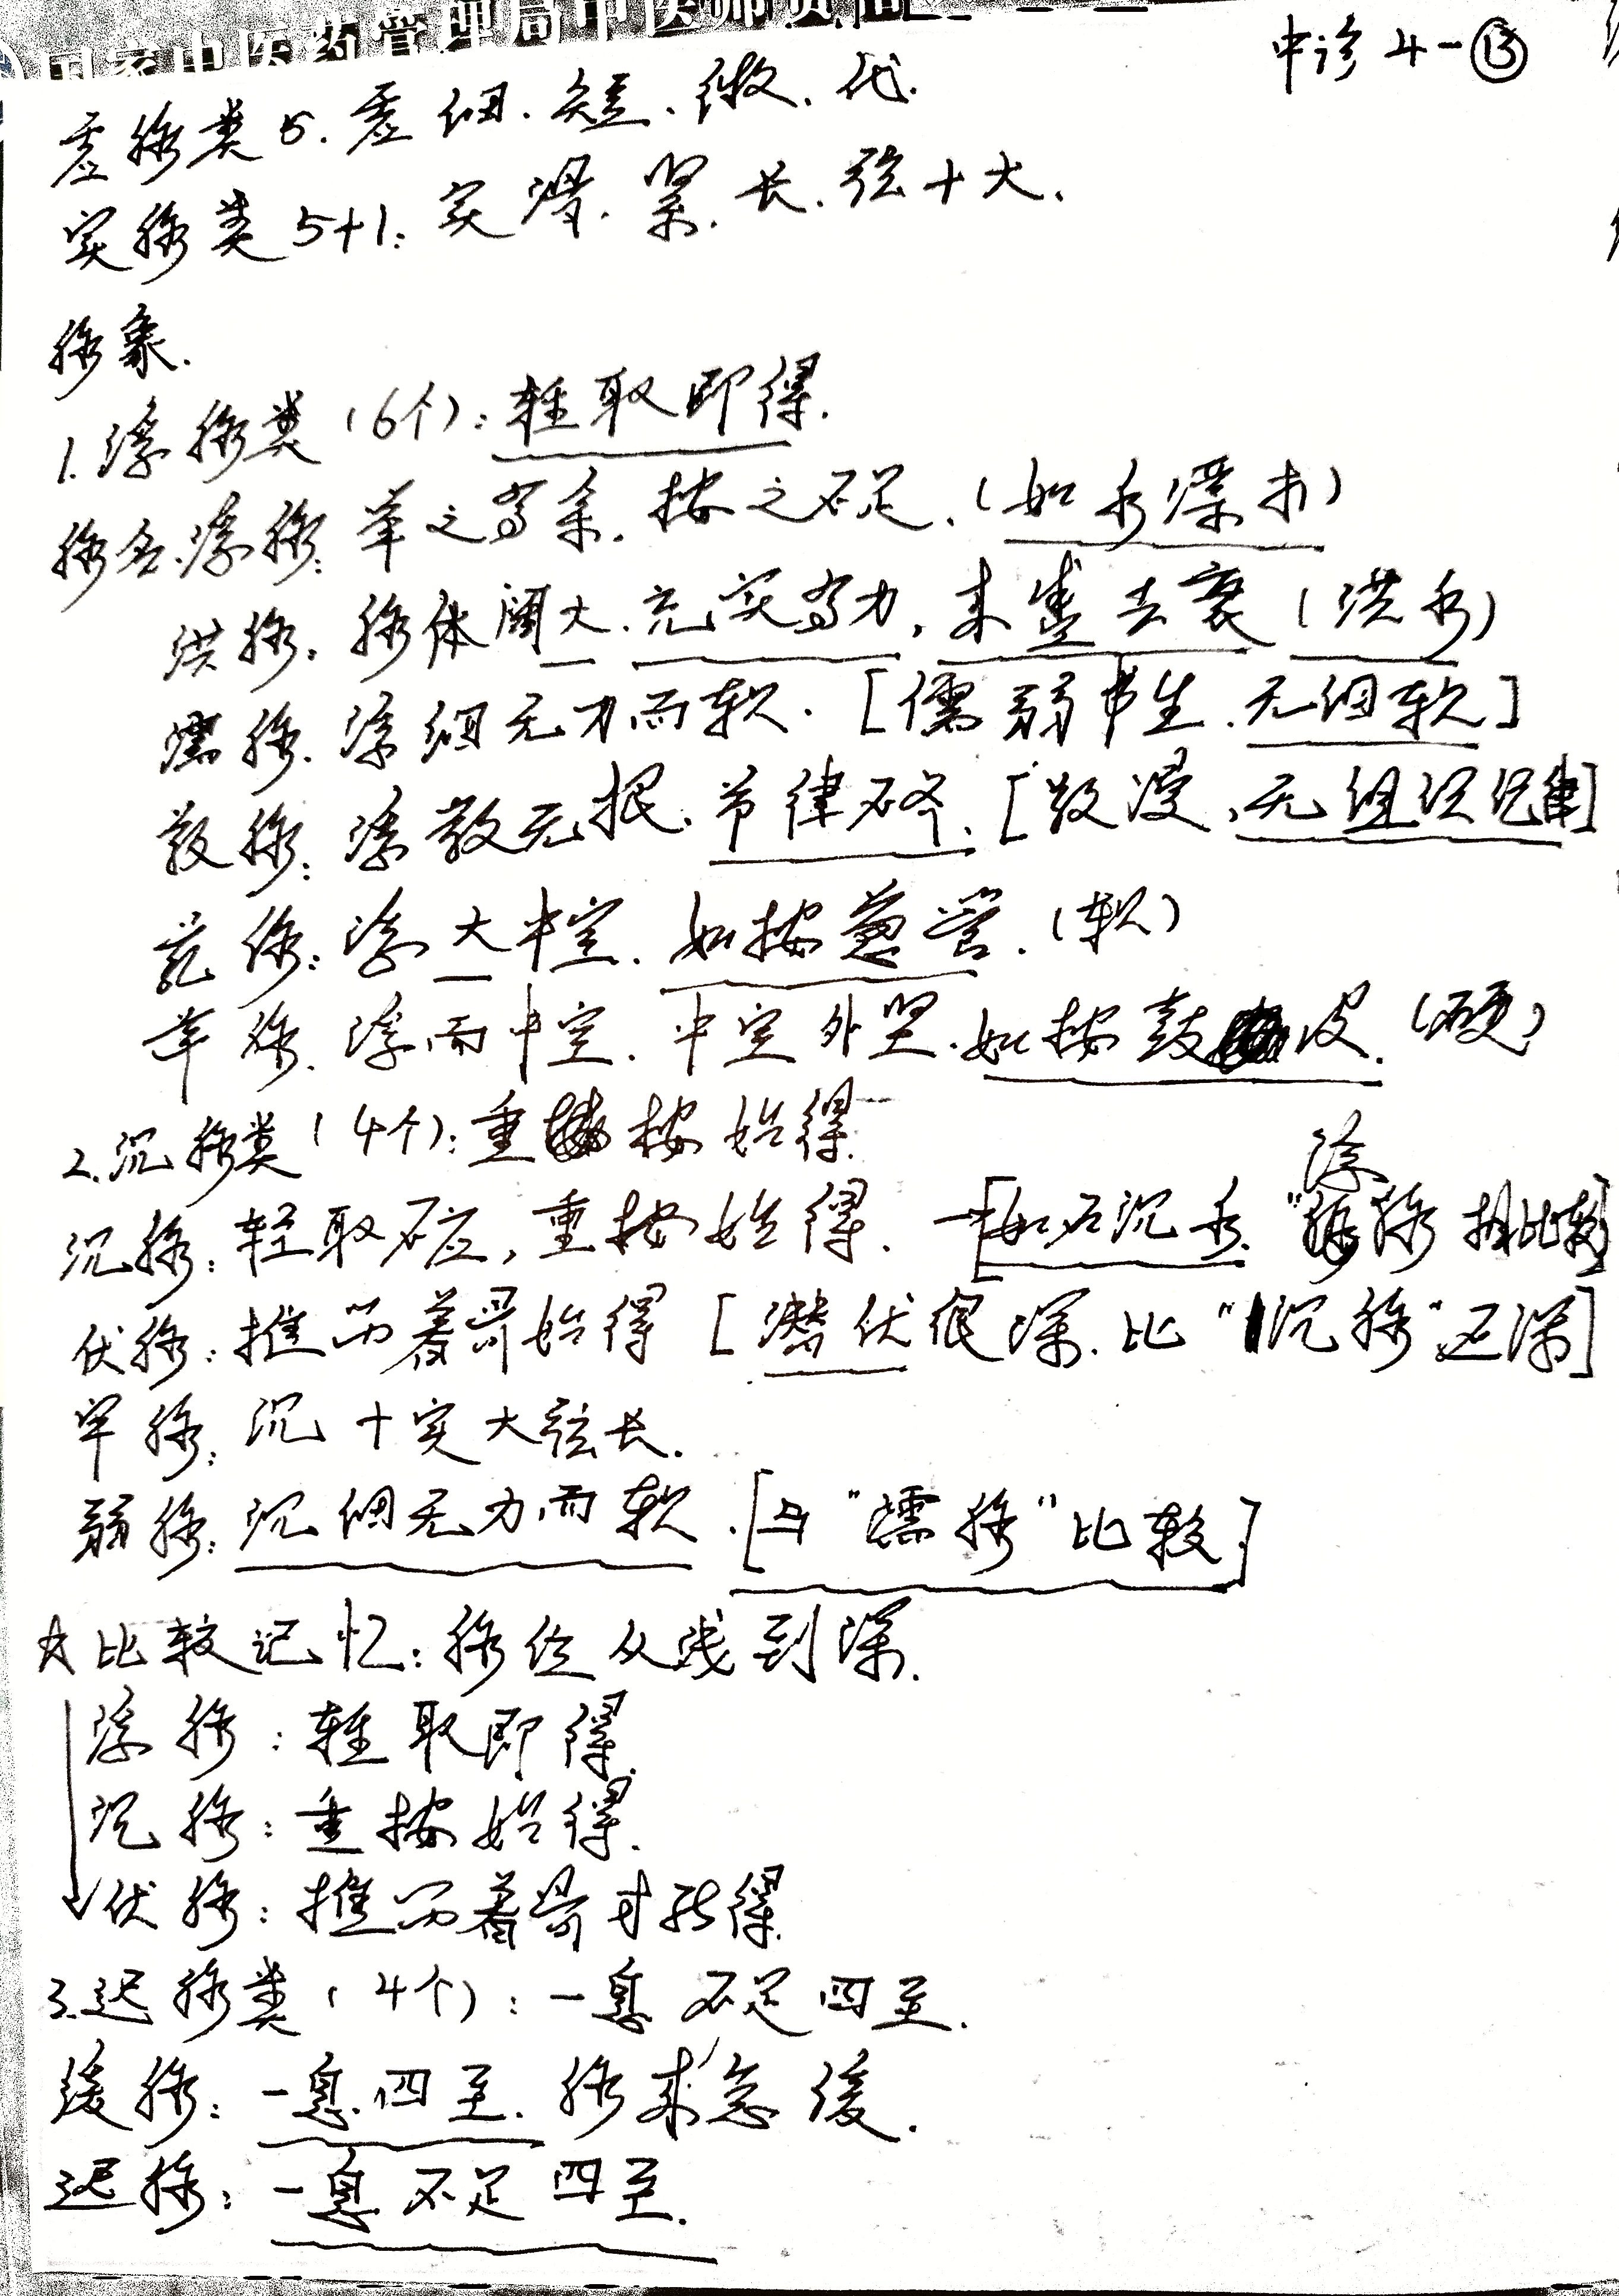 中诊4-⑬
虚脉类5.虚细.短.微.代.
实脉类5+1:实滑.紧.长.弦+大.
脉象.
1.浮脉类(6个):轻取即得.
脉名.浮脉:举之有余.按之不足.(如水漂木)
洪脉.脉体阔大.充实有力,来盛去衰(洪水)
濡脉.浮细无力而软.[儒弱书生.无细软]
散脉:浮散无根.节律不齐.[散漫、无组织纪律]
芤脉:浮大中空.如按葱管.(软)
革脉.浮而中空.中空外坚.如按鼓皮.(硬)
2.沉脉类(4个):重按始得.
沉脉:轻取不应,重按始得.→[如石沉水."浮脉相比较]
伏脉:推筋着骨始得[潜伏很深.比"沉脉"还深]
牢脉:沉+实大弦长.
弱脉:沉细无力而软.[与"濡脉"比较.]
☆比较记忆:脉位从浅到深.
浮脉:轻取即得.
沉脉:重按始得.
伏脉:推筋着骨才能得.
3.迟脉类(4个):一息不足四至.
缓脉:一息四至.脉来怠缓.
迟脉:一息不足四至.